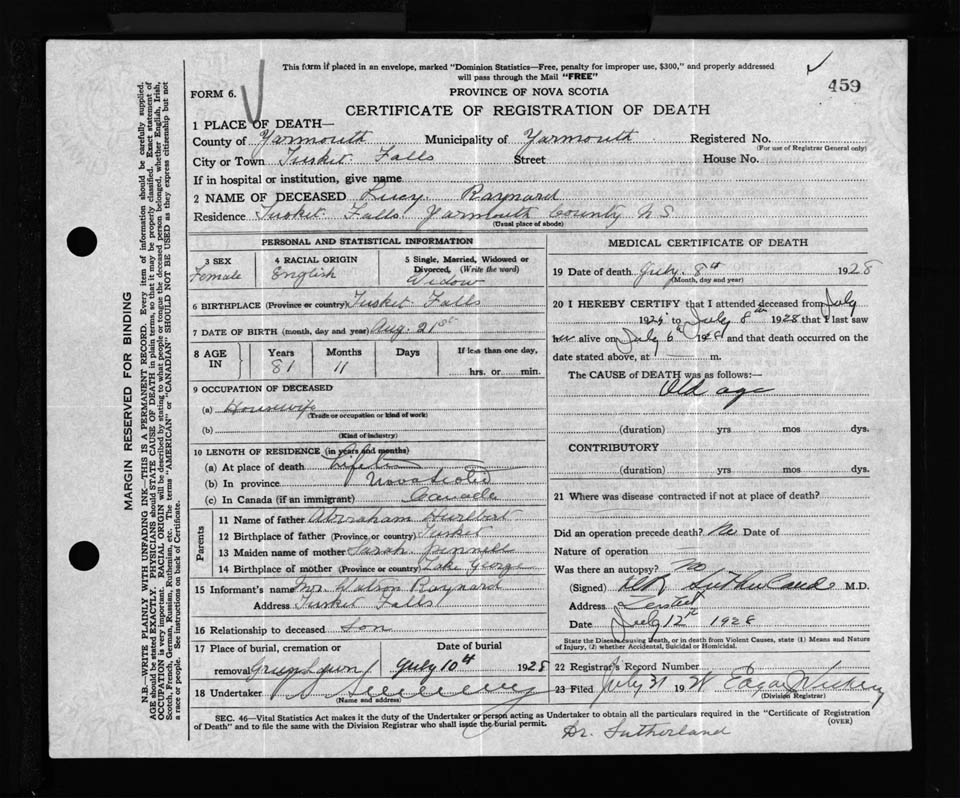 This form if placed in an envelope, marked "Dominion Statistics—Free, penalty for improper use, $300," and properly addressed
will pass through the Mail "FREE"
459
FORM 6.
PROVINCE OF NOVA SCOTIA
CERTIFICATE OF REGISTRATION OF DEATH
1 PLACE OF DEATH—
County of Yarmouth Municipality of Yarmouth Registered No.
(For use of Registrar General only)
City or Town Tusket Falls Street House No.
If in hospital or institution, give name
2 NAME OF DECEASED Lucy Raynard
Residence Tusket Falls Yarmouth County N.S.
(Usual place of abode)
PERSONAL AND STATISTICAL INFORMATION
3 SEX Female
4 RACIAL ORIGIN English
5 Single, Married, Widowed or
Divorced, (Write the word)
Widow
6 BIRTHPLACE (Province or country) Tusket Falls
7 DATE OF BIRTH (month, day and year) Aug. 21st
8 AGE IN
Years 81
Months 11
Days
If less than one day,
hrs. or min.
9 OCCUPATION OF DECEASED
(a) Housewife
(Trade or occupation or kind of work)
(b)
(Kind of industry)
10 LENGTH OF RESIDENCE (in years and months)
(a) At place of death
(b) In province Nova Scotia
(c) In Canada (if an immigrant) Canada
Parents
11 Name of father Abraham Hurlbert
12 Birthplace of father (Province or country) Tusket
13 Maiden name of mother Sarah
14 Birthplace of mother (Province or country) Lake George
15 Informant's name Mr Watson Raynard
Address Tusket Falls
16 Relationship to deceased Son
17 Place of burial, cremation or Date of burial
removal July 10th 1928
18 Undertaker
(Name and address)
MEDICAL CERTIFICATE OF DEATH
19 Date of death July 8th 1928
(Month, day and year)
20 I HEREBY CERTIFY that I attended deceased from July
to July 8th 1928 that I last saw
her alive on July 6th 1928 and that death occurred on the
date stated above, at — m.
The CAUSE of DEATH was as follows:—
Old age
(duration) yrs mos dys.
CONTRIBUTORY
(duration) yrs mos dys.
21 Where was disease contracted if not at place of death?
Did an operation precede death? No Date of
Nature of operation
Was there an autopsy? No
(Signed) Sutherland M.D.
Address
Date July 12th 1928
State the Disease causing Death, or in death from Violent Causes, state (1) Means and Nature
of Injury, (2) whether Accidental, Suicidal or Homicidal.
22 Registrar's Record Number
23 Filed July 31 1928 Edgar
(Division Registrar)
SEC. 46—Vital Statistics Act makes it the duty of the Undertaker or person acting as Undertaker to obtain all the particulars required in the "Certificate of Registration
of Death" and to file the same with the Division Registrar who shall issue the burial permit.
(OVER)
Dr. Sutherland
MARGIN RESERVED FOR BINDING
N.B.—WRITE PLAINLY WITH UNFADING INK—THIS IS A PERMANENT RECORD. Every item of information should be carefully supplied.
AGE should be stated EXACTLY. PHYSICIANS should STATE CAUSE OF DEATH in plain terms, so that it may be properly classified. Exact statement of
OCCUPATION is very important. RACIAL ORIGIN will be described by stating to what people or tongue the deceased person belonged, whether English, Irish,
Scotch, French, German, Russian, Ruthenian, etc. The terms "AMERICAN" or "CANADIAN" SHOULD NOT BE USED as they express citizenship but not
a race or people. See instructions on back of Certificate.